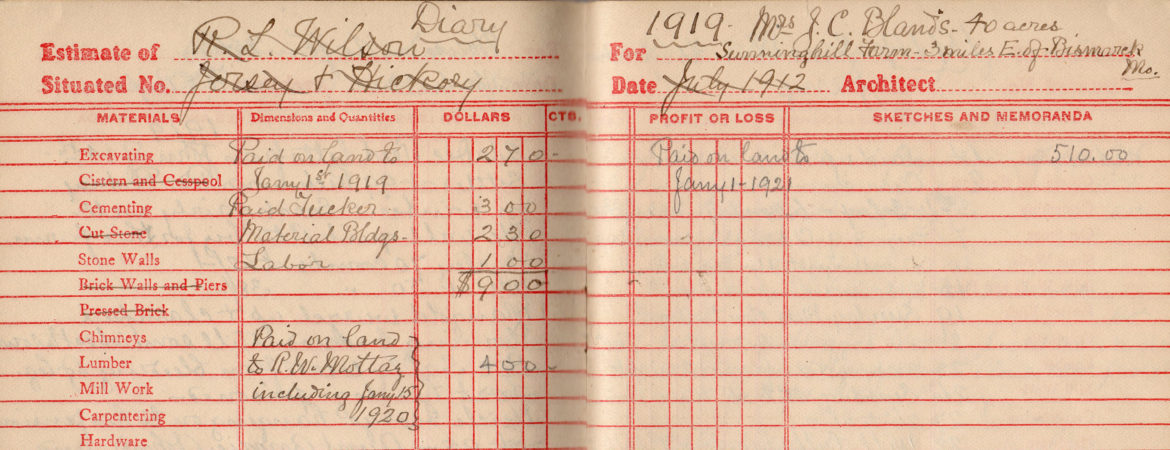 Diary
Estimate of R. L. Wilson
Situated No. Jersey & Hickory
1919- Mrs J. C. Bland's- 40 acres
For Sunninghill Farm- 3 miles E. of Bismarck
Mo.
Date July 1912 Architect
MATERIALS Dimensions and Quantities DOLLARS CTS. PROFIT OR LOSS SKETCHES AND MEMORANDA
Excavating Paid on land to 270- Paid on land to 510.00
Cistern and Cesspool Jany 1st 1919 Jany 1-1921
Cementing Paid Tucker- 300
Cut Stone Material Bldgs- 230
Stone Walls Labor 100
Brick Walls and Piers $900
Pressed Brick
Chimneys Paid on land
Lumber to R. W. 400-
Mill Work including Jany 15
Carpentering 1920
Hardware